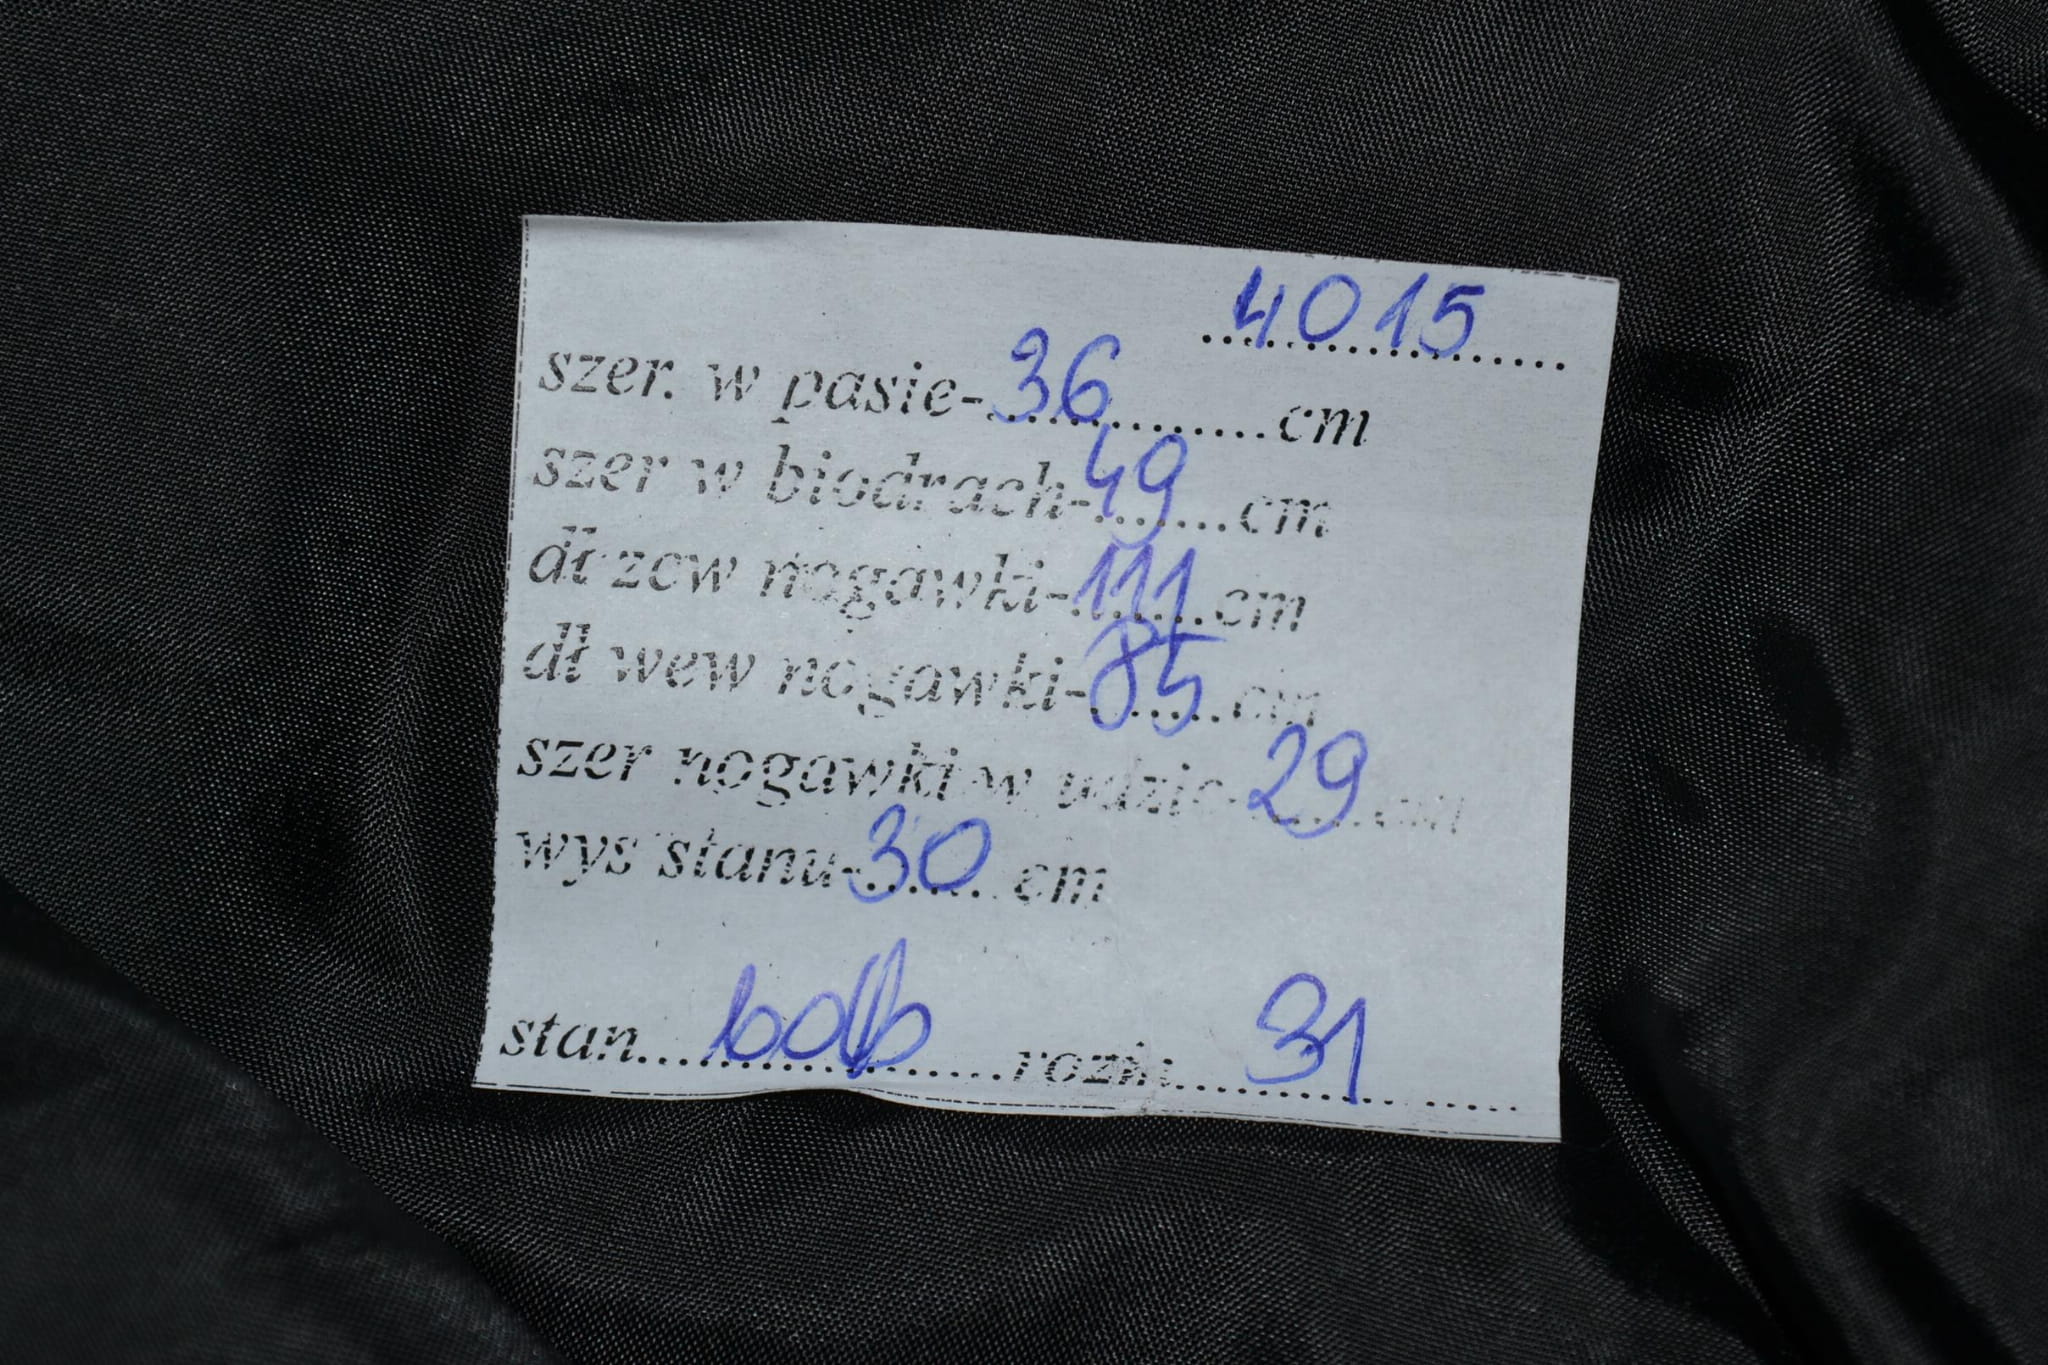 4015
szer. w pasie-36............cm
szer w biodrach-49.......cm
dł zew nogawki-111.......cm
dł wew nogawki-85.......cm
szer nogawki w udzie-29......cm
wys stanu-30......cm
stan.................... rozm 31